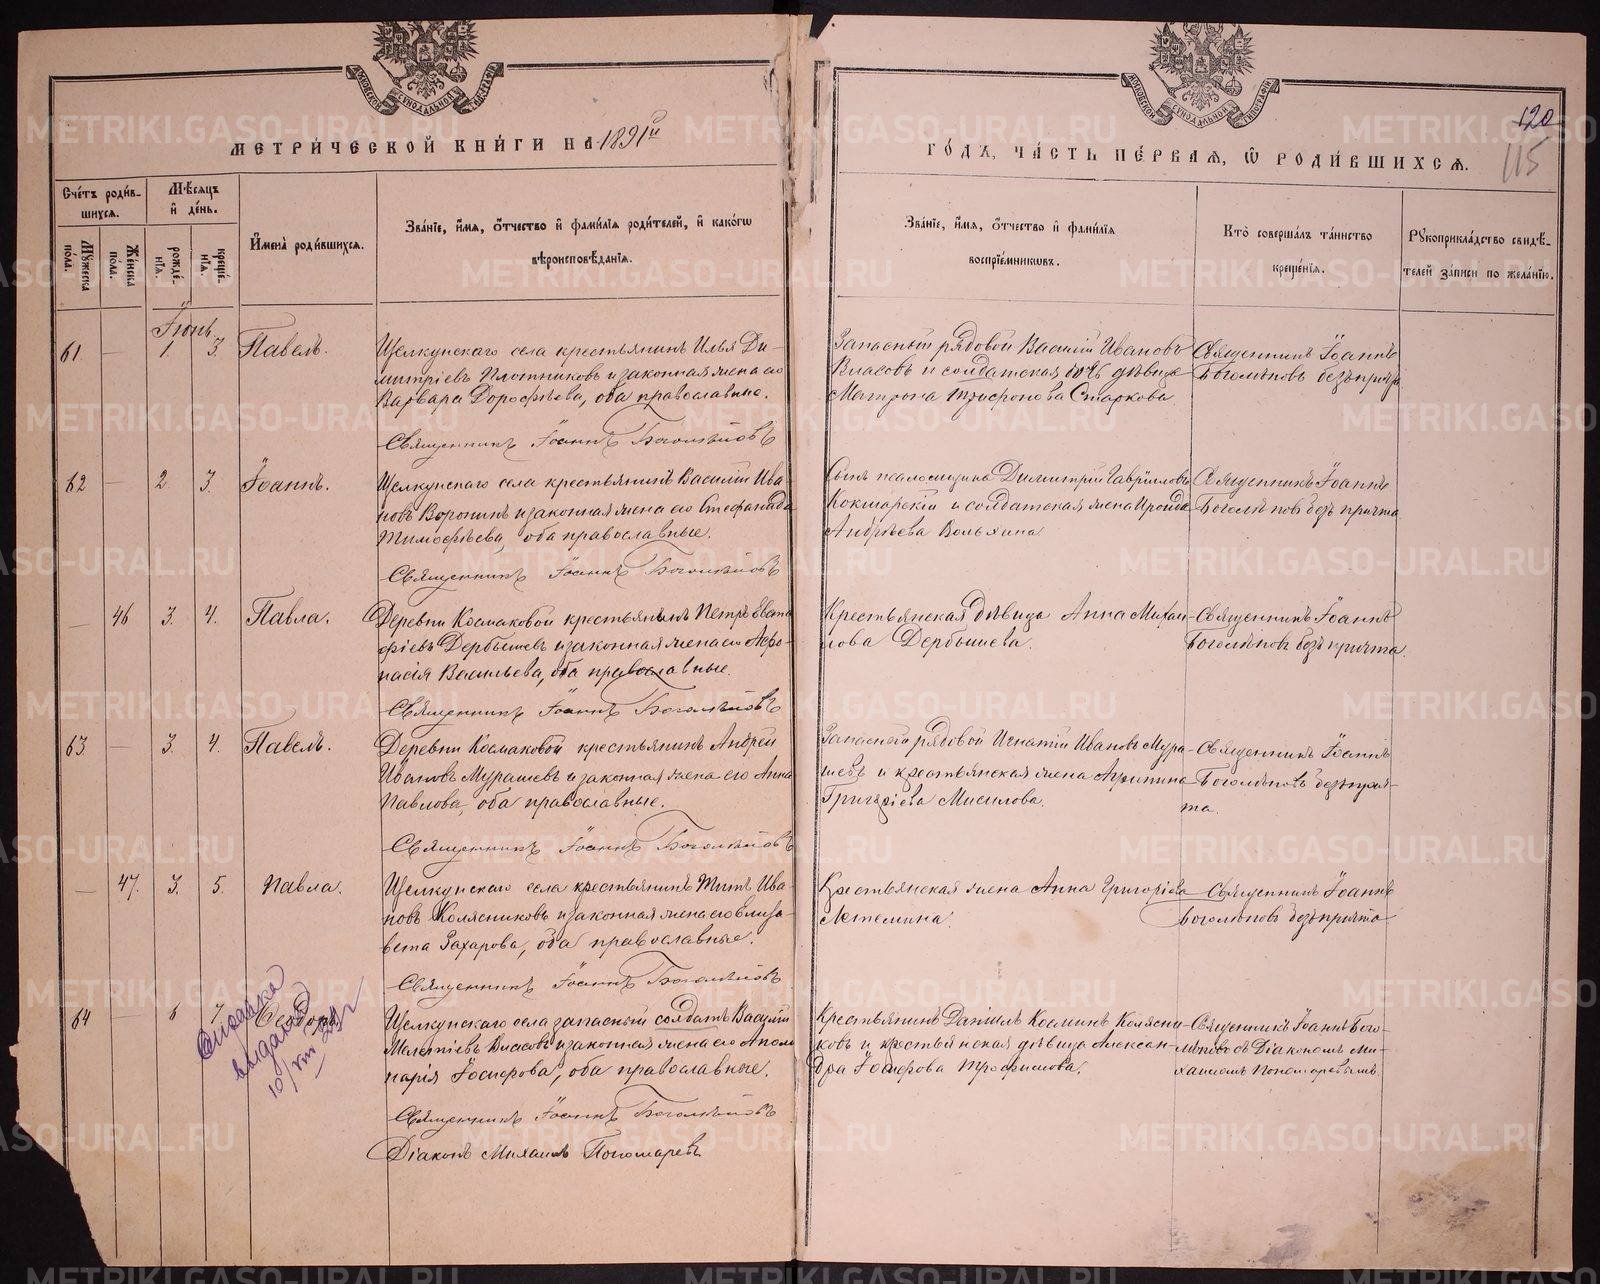 МЕТРИ́ЧЕСКОЙ КНИ́ГИ НА 1891й
ГО́ДЪ, ЧА́СТЬ ПЕ́РВАЯ, Ѡ҆ РОДИ́ВШИХСѦ.
120
115
Сче́тъ роди́в-
шихся.
Мѣ́сяцъ
и҆ де́нь.
Мꙋжеска
по́ла.
Же́нска
по́ла.
рожде́-
нїя.
креще́-
нїя.
И҆мена̀ роди́вшихся.
Зва́нїе, и҆́мя, ѻ҆́тчество и҆ фами́лїя роди́телей, и҆ како́гѡ
вѣроисповѣ́данїя.
Зва́нїе, и҆́мя, ѻ҆́тчество и҆ фами́лїя
воспрїе́мниковъ.
Кто̀ соверша́лъ та́инство
креще́нїя.
Рꙋкоприкла́дство свидѣ́-
телей за́писи по жела́нїю.
Іюнь
61 — 1. 3. Павелъ.
Щелкунскаго села крестьянинъ Илья Ди-
митріевъ Плотниковъ и законная жена его
Варвара Дорофѣева, оба православные.
Священникъ Іоаннъ Боголѣповъ
Запасный рядовой Василій Ивановъ
Власовъ и солдатская дочь дѣвица
Матрона Трифонова Старкова
Священникъ Іоаннъ
Боголѣповъ безъ причта
62 — 2. 3. Іоаннъ.
Щелкунскаго села крестьянинъ Василій Ива-
новъ Воронинъ и законная жена его Стефанида
Тимофѣева, оба православные.
Священникъ Іоаннъ Боголѣповъ
Сынъ псаломщика Димитрій Гавріиловъ
Кокшарскій и солдатская жена Ироида
Андрѣева Вольхина
Священникъ Іоаннъ
Боголѣповъ безъ причта
— 46 3. 4. Павла.
Деревни Космаковой крестьянинъ Петръ Евста
фіевъ Дербышевъ и законная жена его Аѳа-
насія Васильева, оба православные.
Священникъ Іоаннъ Боголѣповъ
Крестьянская дѣвица Анна Михаи-
лова Дербышева.
Священникъ Іоаннъ
Боголѣповъ безъ причта.
63 — 3. 4. Павелъ.
Деревни Космаковой крестьянинъ Андрей
Ивановъ Мурашевъ и законная жена его Анна
Павлова, оба православные.
Священникъ Іоаннъ Боголѣповъ
Запасный рядовой Игнатій Ивановъ Мура-
шевъ и крестьянская жена Агрипина
Григоріева Мисилова.
Священникъ Іоаннъ
Боголѣповъ безъ прич-
та.
— 47. 3. 5. Павла.
Щелкунскаго села крестьянинъ Титъ Ива-
новъ Колясниковъ и законная жена его Елиза-
вета Захарова, оба православные.
Священникъ Іоаннъ Боголѣповъ
Крестьянская жена Анна Григоріева
Летемина.
Священникъ Іоаннъ
Боголѣповъ безъ причта
64 — 6 7
выдана
10/VIII
Щелкунскаго села запасный солдатъ Василій
Власовъ и законная жена его Аполи
нарія Іосифова, оба православные.
Священникъ Іоаннъ Боголѣповъ
Діаконъ Михаилъ Пономаревъ
Крестьянинъ Даніилъ Косминъ Колясни-
ковъ и крестьянская дѣвица Алексан-
дра Іосифова Трофимова.
Священникъ Іоаннъ Бого-
лѣповъ съ Діакономъ Ми-
хаиломъ Пономаревымъ
METRIKI.GASO-URAL.RU